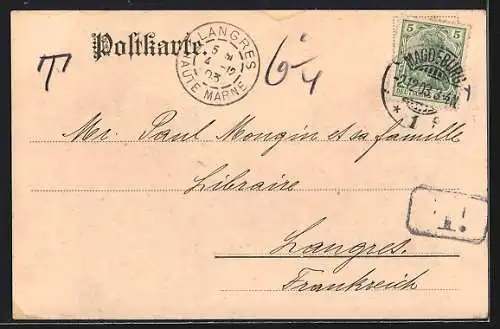 Postkarte.
LANGRES
5 M
4 -12
03
HAUTE MARNE
T
5 5
MAGDEBURG
* 1
Mr. Paul Mongin et sa famille
Libraire
Langres.
Frankreich